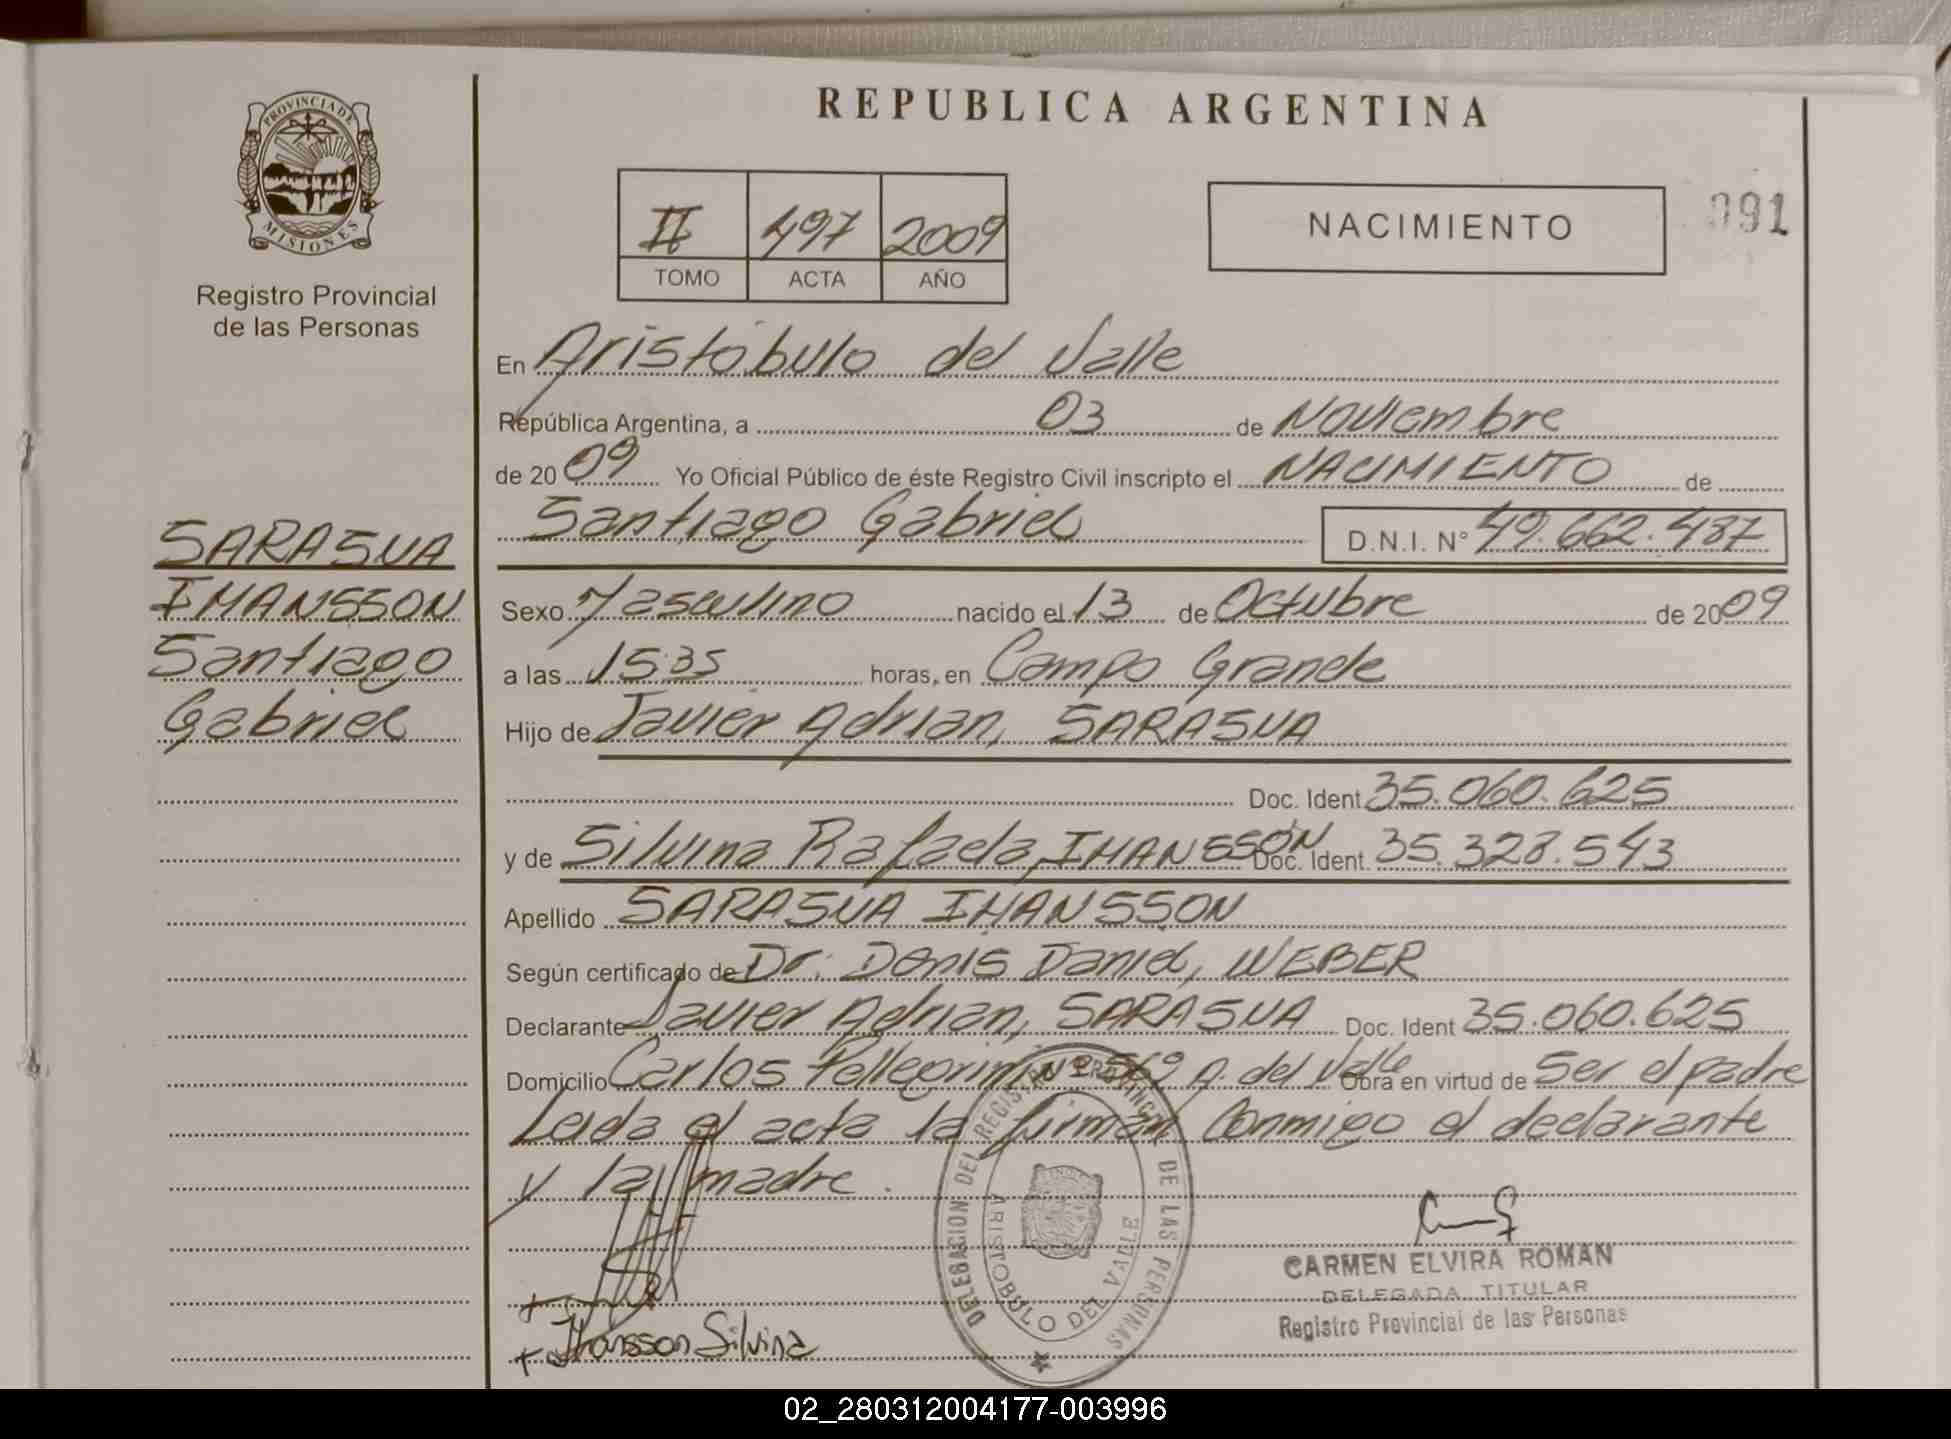 PROVINCIA DE
MISIONES
Registro Provincial
de las Personas
SARASUA
IHANSSON
Santiago
Gabriel
REPUBLICA ARGENTINA
II 497 2009
TOMO ACTA AÑO
NACIMIENTO
091
En Aristóbulo del Valle
República Argentina, a 03 de Noviembre
de 2009 Yo Oficial Público de éste Registro Civil inscripto el NACIMIENTO de
Santiago Gabriel D.N.I. N° 49.662.487
Sexo Masculino nacido el 13 de Octubre de 2009
a las 15:35 horas, en Campo Grande
Hijo de Javier Adrian, SARASUA
Doc. Ident 35.060.625
y de Silvina Rafaela, IHANSSON Doc. Ident. 35.328.543
Apellido SARASUA IHANSSON
Según certificado de Dr. Denis Daniel, WEBER
Declarante Javier Adrian, SARASUA Doc. Ident 35.060.625
Domicilio Carlos Pellegrini Nº 569 A. del Valle Obra en virtud de Ser el padre
Leida el acta la firman Conmigo el declarante
y la madre.
DELEGACION DEL REGISTRO PROVINCIAL DE LAS PERSONAS
ARISTOBULO DEL VALLE
CARMEN ELVIRA ROMAN
DELEGADA TITULAR
Registro Provincial de las Personas
Ihansson Silvina
02_280312004177-003996